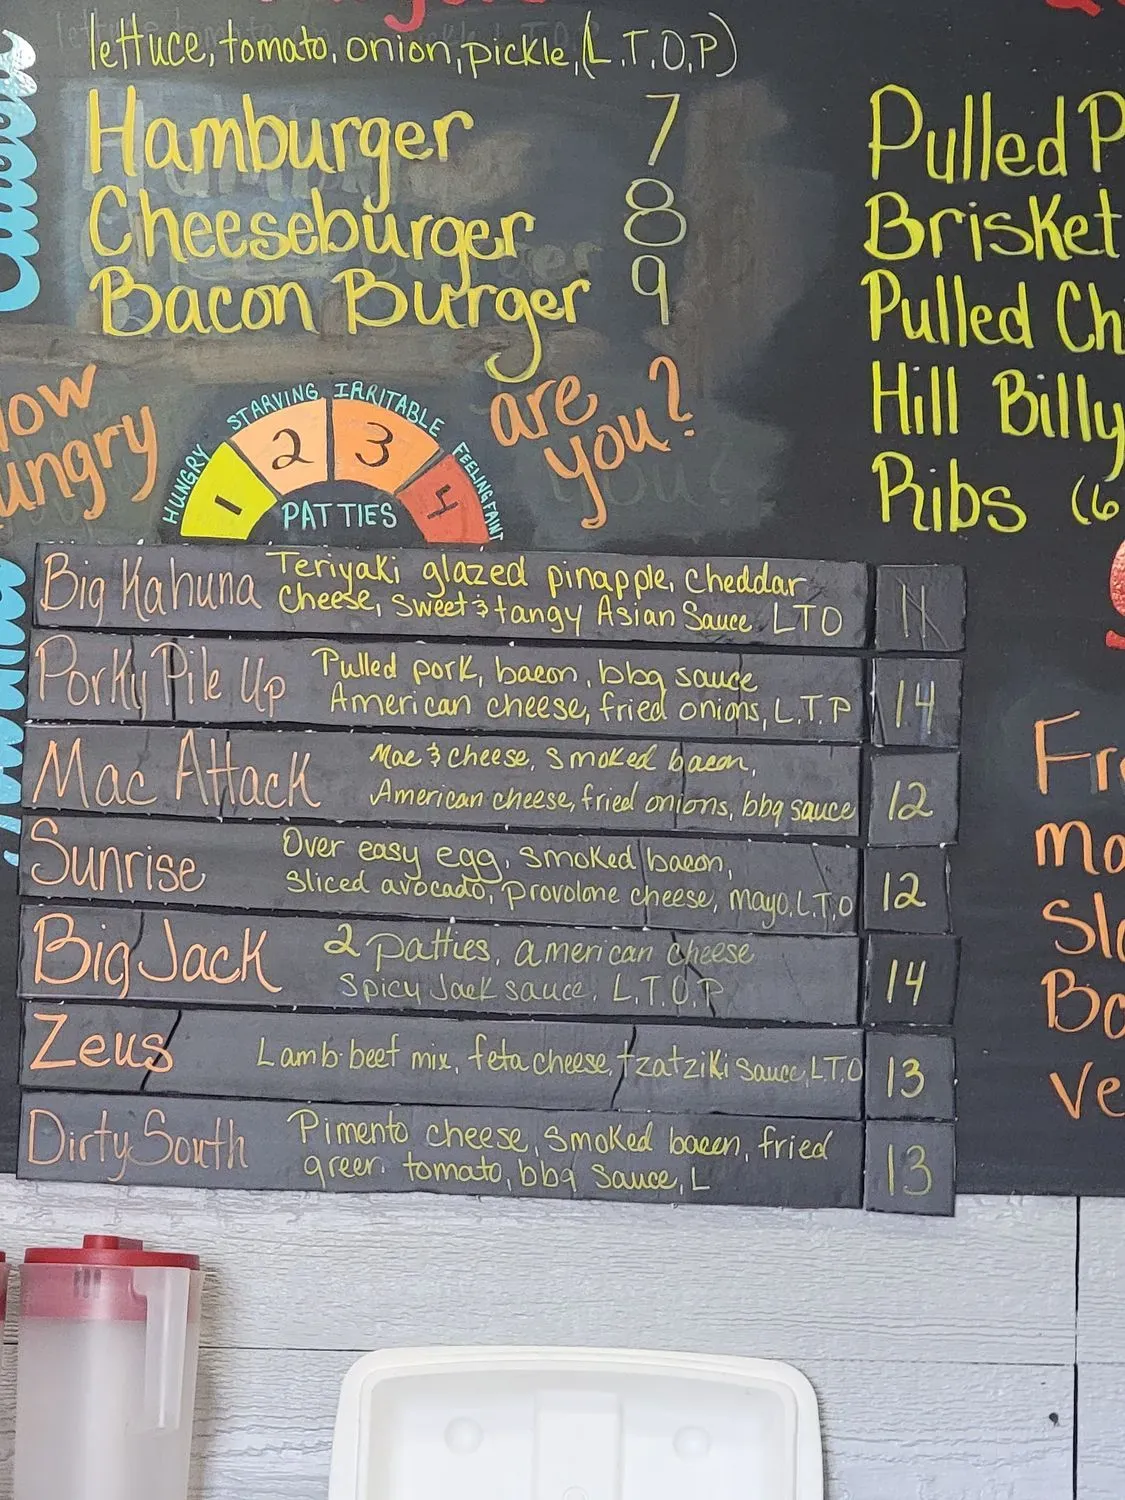 lettuce, tomato, onion, pickle, (L.T.O.P)
Hamburger 7
Cheeseburger 8
Bacon Burger 9
are you?
HUNGRY STARVING IRRITABLE FEELING FAINT
1 2 3 4
PATTIES
Big Kahuna Teriyaki glazed pinapple, cheddar
cheese, sweet & tangy Asian Sauce LTO 11
Porky Pile Up Pulled pork, bacon, bbq sauce
American cheese, fried onions, L.T.P 14
Mac Attack Mac & cheese, smoked bacon,
American cheese, fried onions, bbq sauce 12
Sunrise Over easy egg, smoked bacon,
sliced avocado, provolone cheese, mayo, L.T.O 12
Big Jack 2 patties, american cheese
Spicy Jack sauce, L.T.O.P 14
Zeus Lamb-beef mix, feta cheese, tzatziki sauce, L.T.O 13
Dirty South Pimento cheese, smoked bacon, fried
green tomato, bbq sauce, L 13
Pulled P
Brisket
Pulled Ch
Hill Billy
Ribs (6
Fr
Ma
Sl
Ve